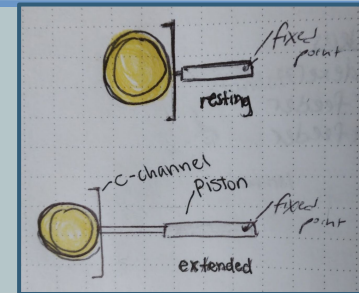 fixed
point
resting
C-channel
Piston
fixed
point
extended